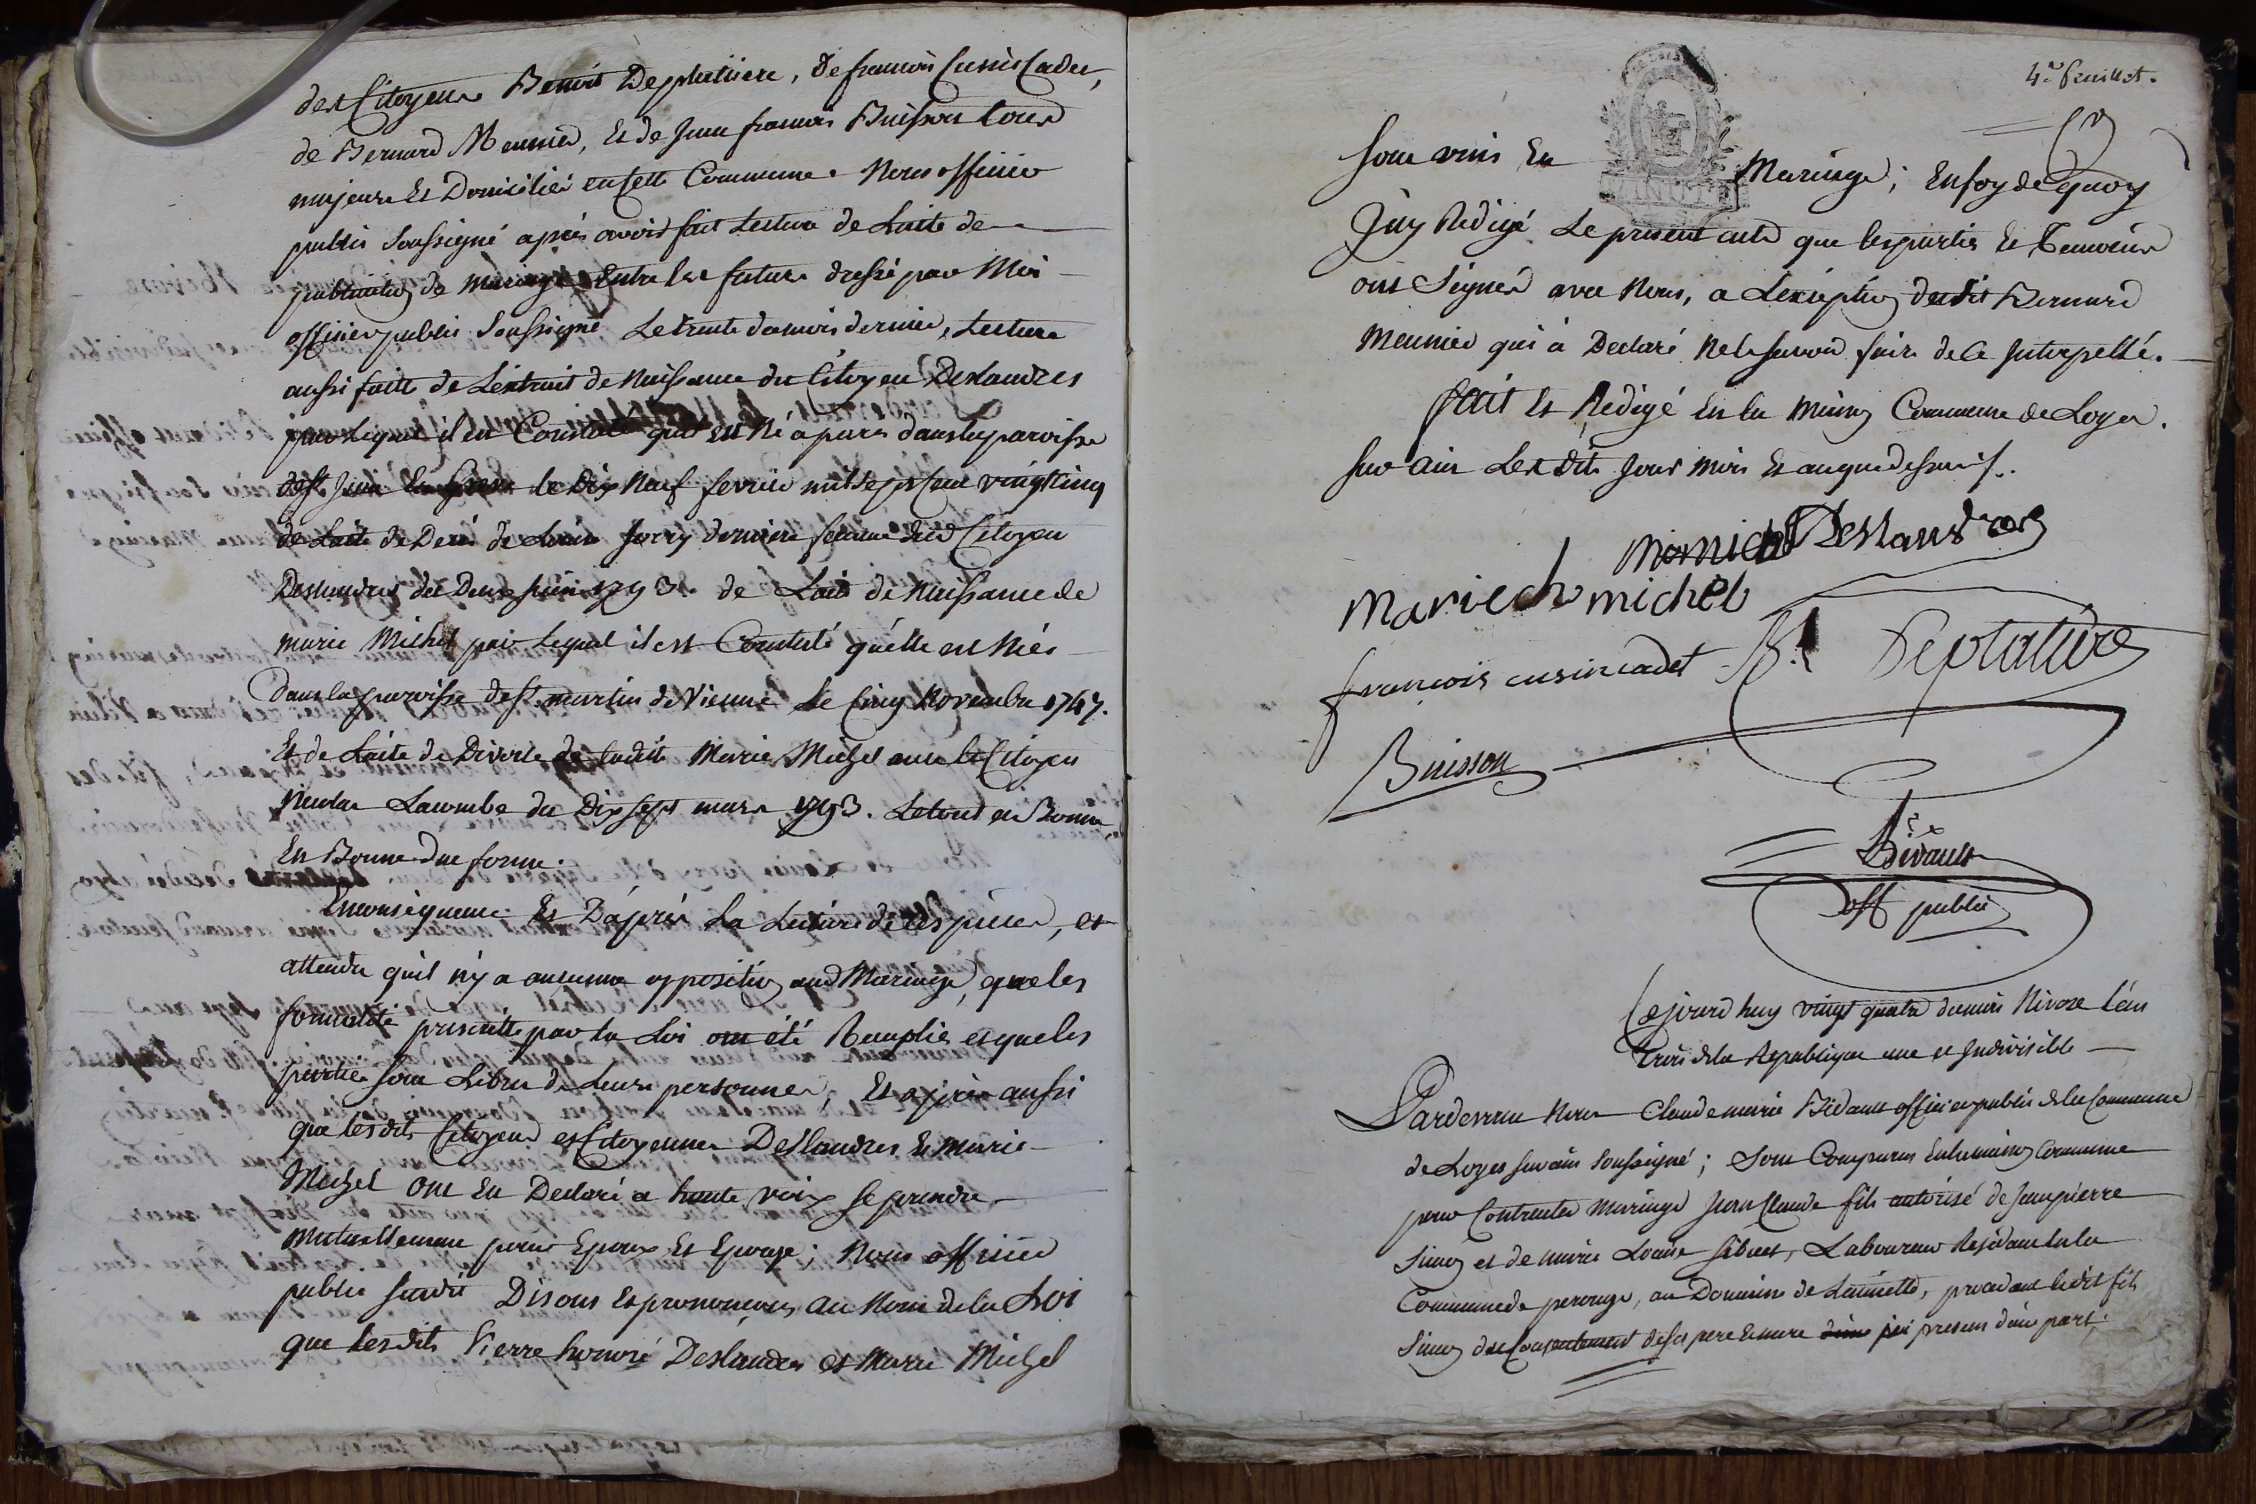 des Citoyens Benoit Deplatiere, de francois Cusin Cadet,
de Bernard Meunier, et de Jean francois Buisson tous
majeurs Et Domiciliés en Cette Commune. Nous officier
public Soussigné après avoir fait Lecture de Lacte de
publication de Mariage Entre les futurs dressé par Moi
officier public Soussigné Le trente du mois dernier, Lecture
aussi faite de L'extrait de Naissance du Citoyen Deslandres
par Lequel il est Constaté quil est Né a paris dans la paroisse
de St Jean En Greve le Dix Neuf fevrier mil Sept Cent vingt Cinq
de Lacte de Decès de Louise Jorry derniere femme dud Citoyen
Deslandres du Deux Juin 1793. de Lacte de Naissance de
marie Michel par Lequel il est Constaté qu'elle est Née
dans la paroisse de St. martin de Vienne Le Cinq Novembre 1747.
Et de Lacte de Divorce de ladite Marie Michel avec le Citoyen
Nicolas Lacombe du Dix sept mars 1793. Le tout en Bonne
En Bonne due forme.
En Conséquence Et D'après La Lecture de Ces pieces, et
attendu quil n'y a aucune opposition aud Mariage, que les
formalité prescritte par la Loi ont été Remplie, et que les
parties sont Libres de Leurs personnes, Et après aussi
que lesdits Citoyens et Citoyennes Deslandres Et marie
Michel ont Eu Declaré a haute voix se prendre
mutuellement pour Epoux Et Epouse; Nous officier
public susdit Disons Et prononçons au Nom de la Loi
que lesdits Pierre honoré Deslandres et Marie Michel
4e feuillet.
Sont unis En Mariage; En foy de quoy
J'ay Rédigé Le present acte que les parties Et Temoins
ont Signés avec Nous, a L'exception dudit Bernard
Meunier qui à Declaré Ne le savoir faire de Ce Interpellé.
fait Et Rédigé En la Maison Commune de Loyes
sur ain Les dits Jour Mois Et an que dessus /.
Deslandres
Marie michel
francois cusin cadet Bt Deplatiere
Buisson
Bidault
off public
Cejourd huy vingt quatre du mois Nivose L'an
trois de la Republique une et Indivisible
Pardevant Nous Claude marie Bidault officier public de la Commune
de Loyes sur ain Soussigné; Sont Comparus En la maison Commune
pour Contracter Mariage Jean Claude fils autorisé de Jean pierre
Simon et de marie Louise Laboureur Residant En la
Commune de perouge, au Domaine de procedant ledit fils
Simon du Consentement de ses pere Et mere presens d'une part;